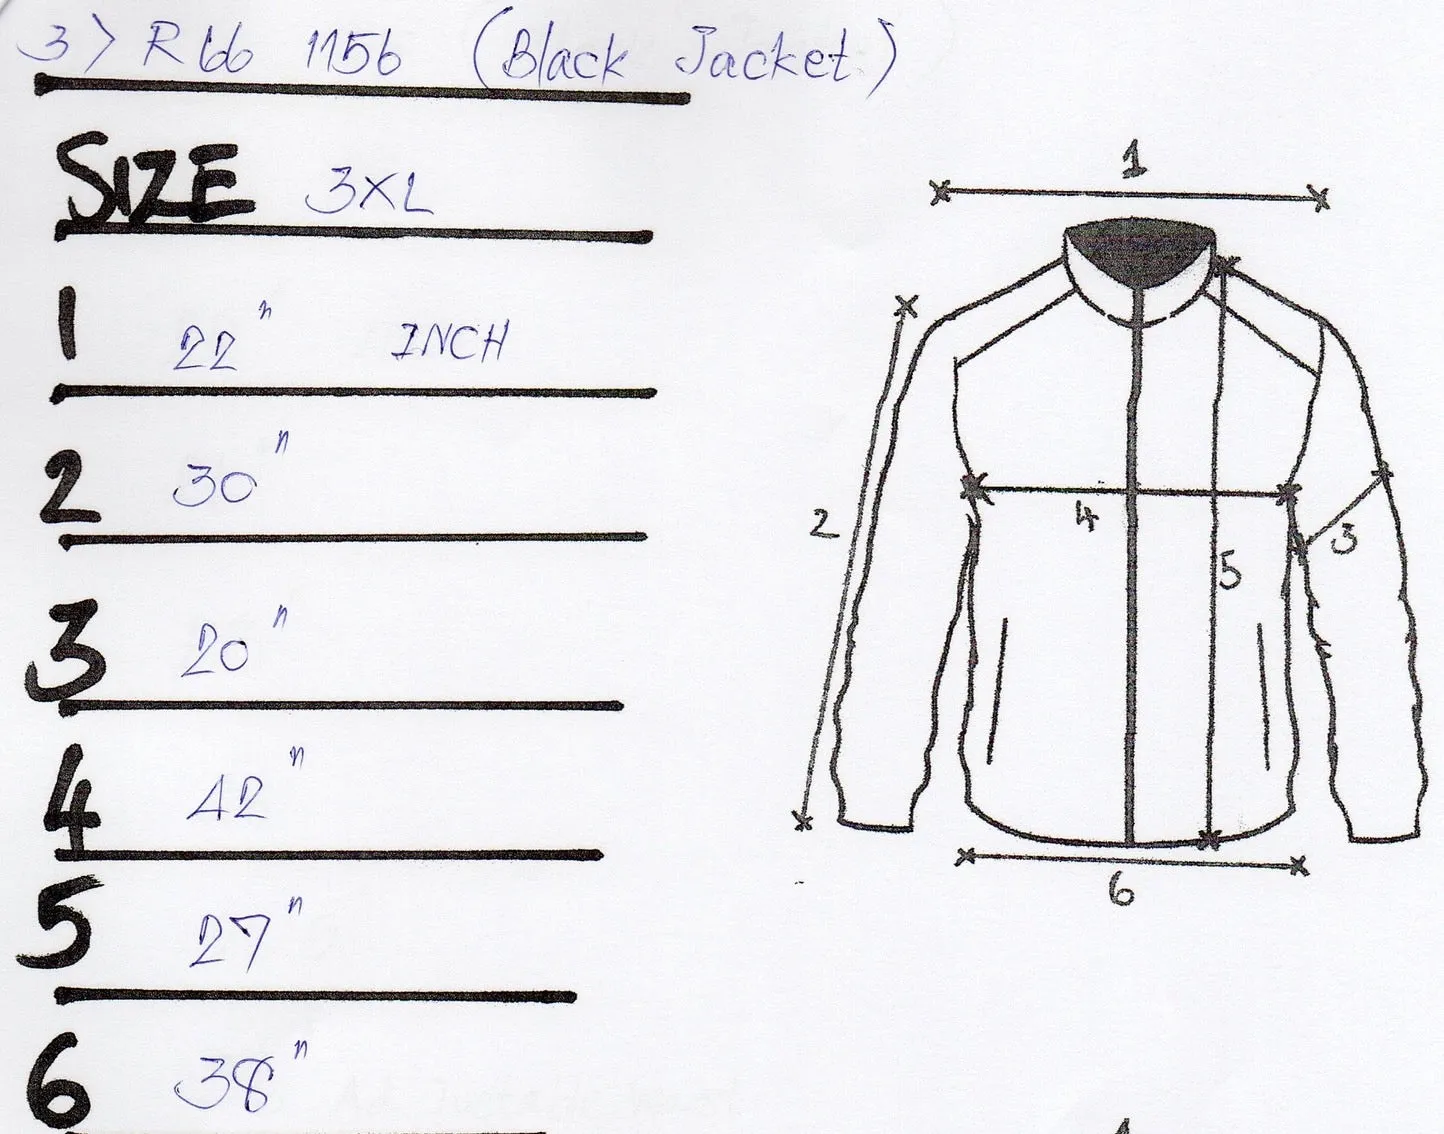 3) R66 1156 (Black Jacket)
SIZE 3XL
1 22" INCH
2 30"
3 20"
4 42"
5 27"
6 38"
1
2
4
3
5
6